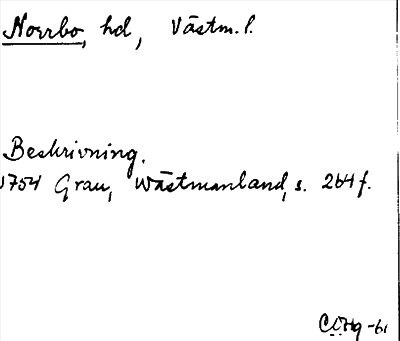 Norrbo, hd, Västm. l.
Beskrivning.
1754 Grau, Wästmanland, s. 264 f.
-61